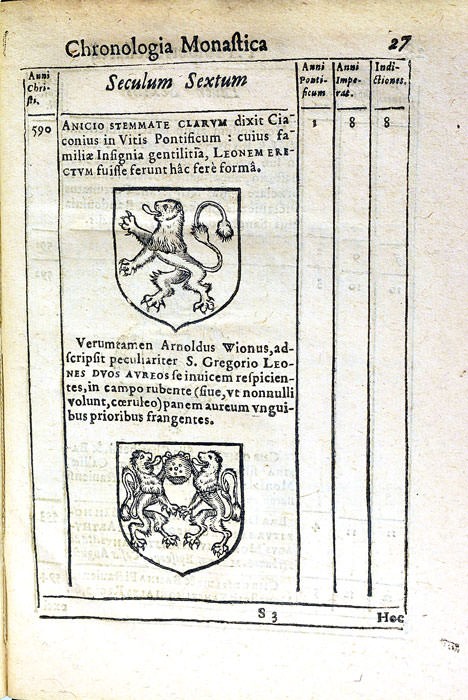 Chronologia Monaſtica 27
Anni Chri- ſti.
Seculum Sextum
Anni Ponti- ficum
Anni Impe- rat.
Indi- ctiones.
590 ANICIO STEMMATE CLARVM dixit Cia- 1 8 8
conius in Vitis Pontificum : cuius fa-
miliæ Inſignia gentilitia, LEONEM ERE-
CTVM fuiſſe ferunt hâc ferè formâ.
Verumtamen Arnoldus Wionus, ad-
ſcripſit peculiariter S. Gregorio LEO-
NES DVOS AVREOS ſe inuicem reſpicien-
tes, in campo rubente (ſiue, vt nonnulli
volunt, cœruleo) panem aureum vngui-
bus prioribus frangentes.
S 3 Hoc